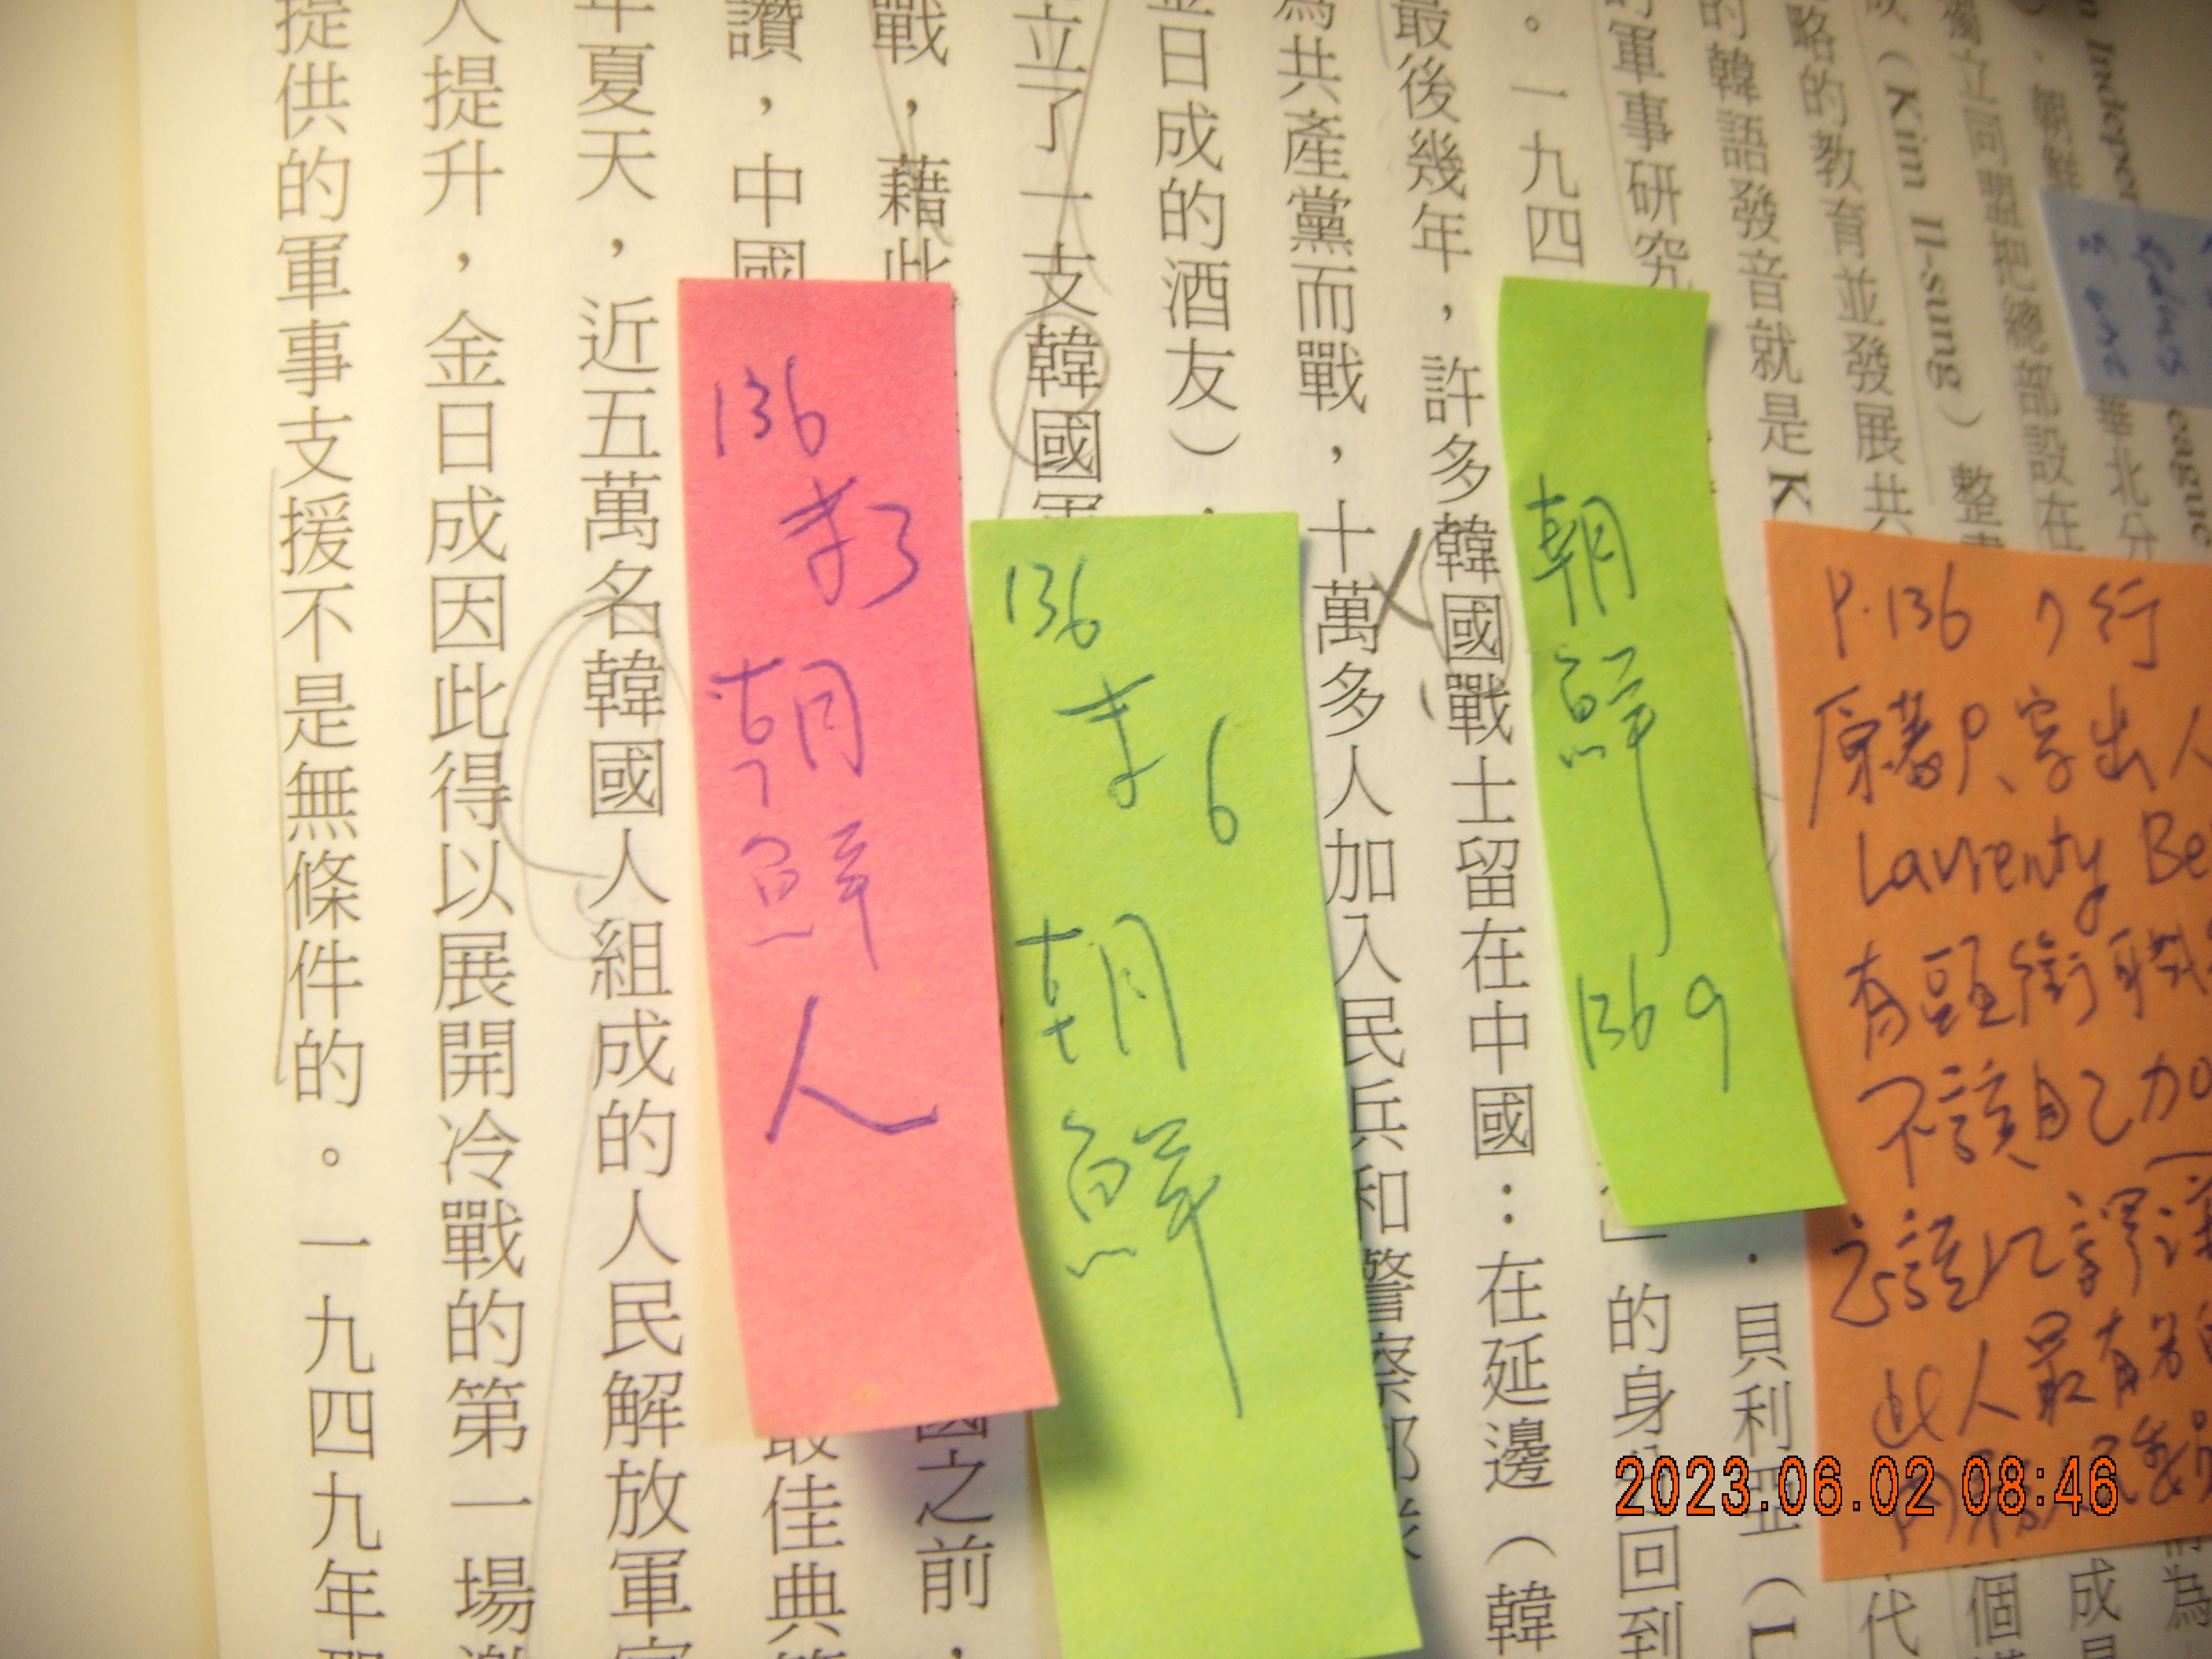 成（Kim Il-sung）整
略的教育並發展共
的韓語發音就是K
的軍事研究
」的身
回到
。一九四
最後幾年，許多韓國戰士留在中國：在延邊（韓
為共產黨而戰，十萬多人加入民兵和警察部
金日成的酒友）
立了一支韓國軍
戰，藉此
國之前，
讚，中國
最佳典
年夏天，近五萬名韓國人組成的人民解放軍官
人提升，金日成因此得以展開冷戰的第一場
提供的軍事支援不是無條件的。一九四九年
貝利亞（L
朝
鮮
136 9
136
末6
朝
鮮
136
末3
朝
鮮
人
P.136 7行
原著只寫出人
Lavrenty Be
有頭銜職
不該自己加
此人最有名
2023.06.02 08:46